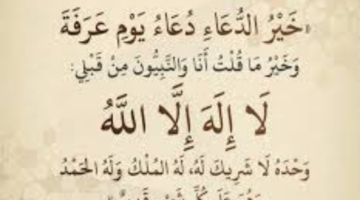 «خَيْرُ الدُّعَاءِ دُعَاءُ يَوْمِ عَرَفَةَ
وَخَيْرُ مَا قُلْتُ أَنَا وَالنَّبِيُّونَ مِنْ قَبْلِي:
لَا إِلَهَ إِلَّا اللَّهُ
وَحْدَهُ لَا شَرِيكَ لَهُ، لَهُ المُلْكُ وَلَهُ الحَمْدُ